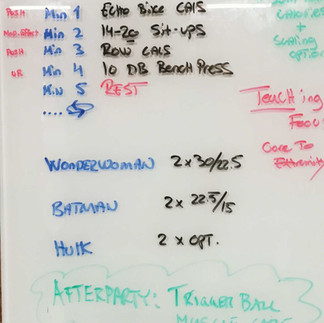 PUSH Min 1 Echo Bike CALS
Min 2 14-20 Sit-ups
PUSH Min 3 Row CALS
Min 4 10 DB Bench Press
Min 5 REST
....
CALORIES
+
Scaling
OPTION
Teaching
Focu
Core To
Extremity
WONDERWOMAN 2 x 30/22.5
BATMAN 2 x 22.5/15
HULK 2 x OPT.
AFTERPARTY: TRIGGER BALL